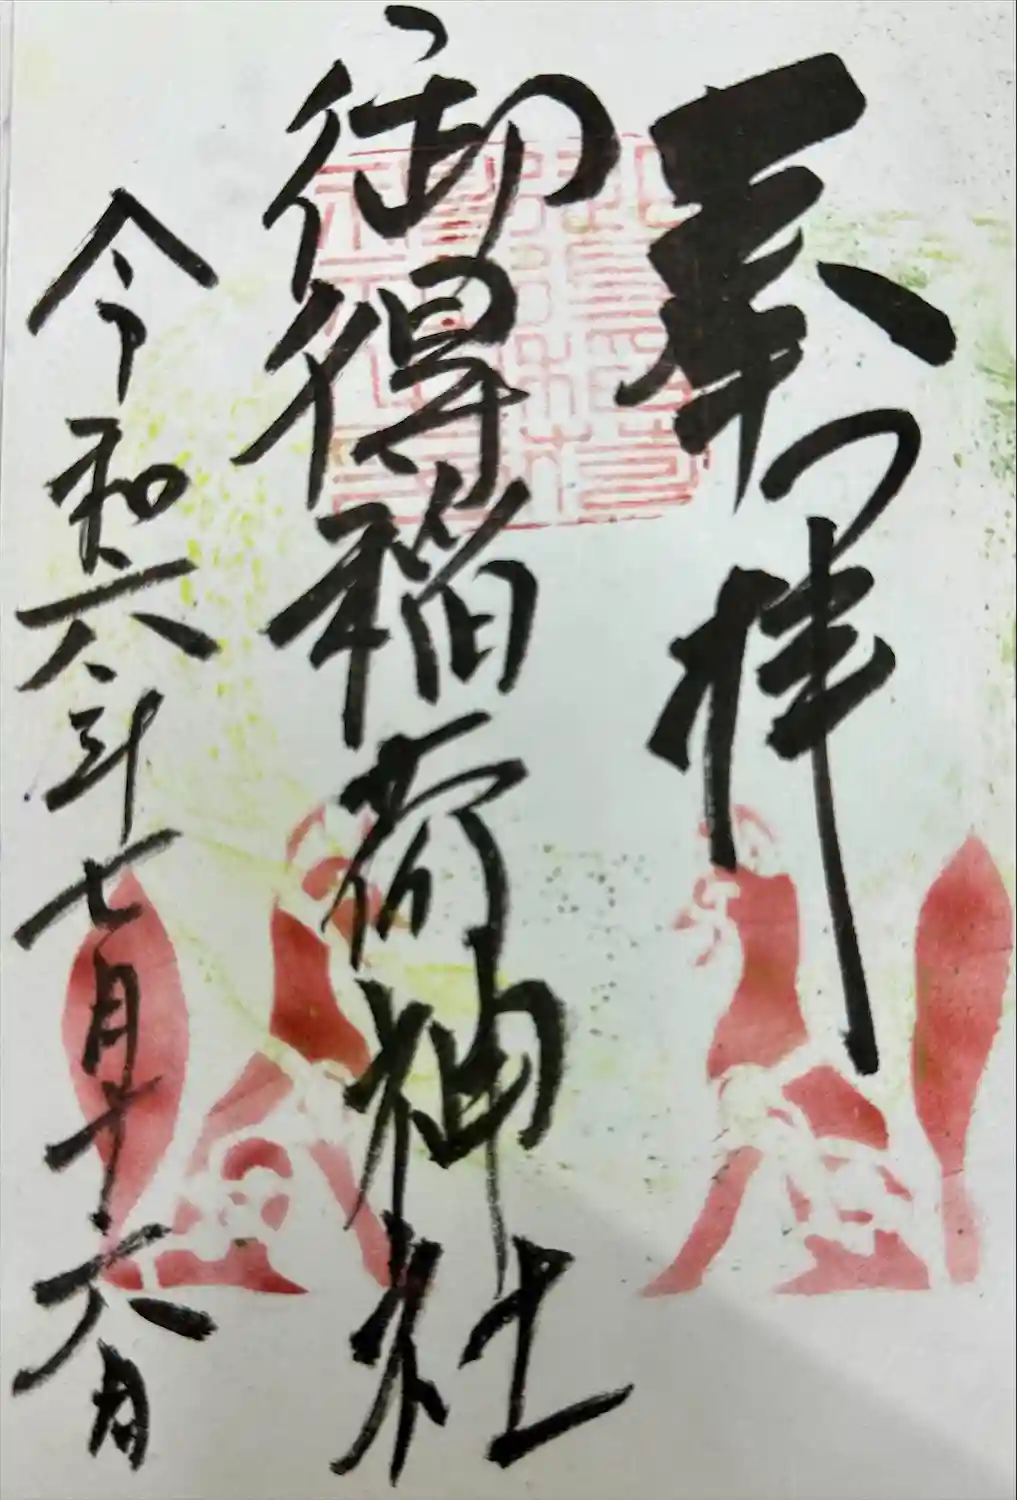 奉拝
御得稲荷神社
令和六年七月十六日